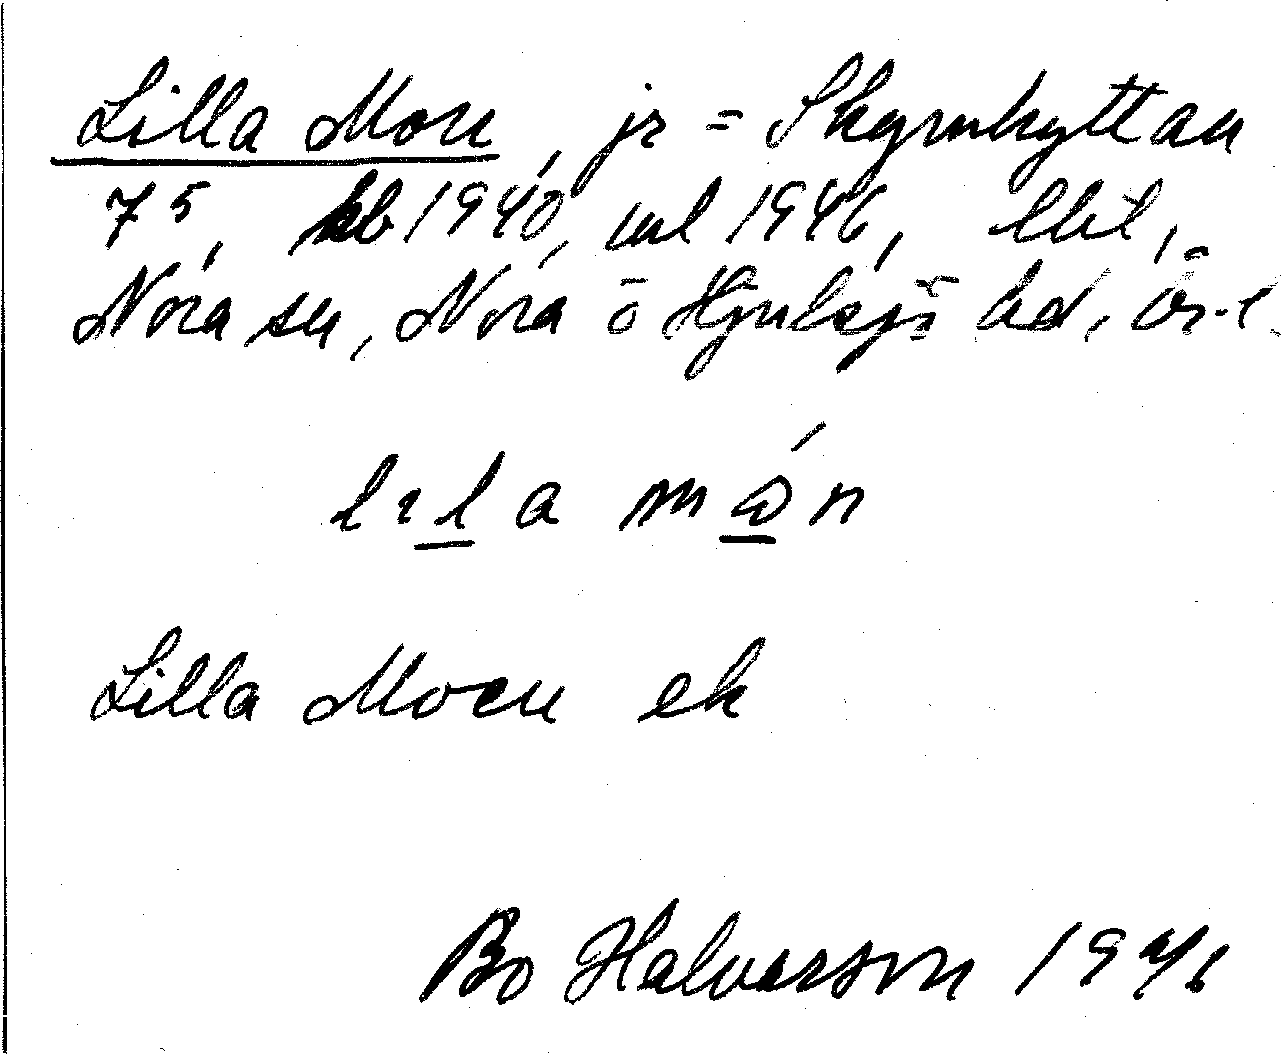 Lilla Mon, jr = Skyrnhyttan
7⁵, kb 1940, ml 1946,
Nora sn, Nora o Hjulsjö hd, Ör. l.
lɩla món
Lilla Moen ek
Bo Halvarson 1946